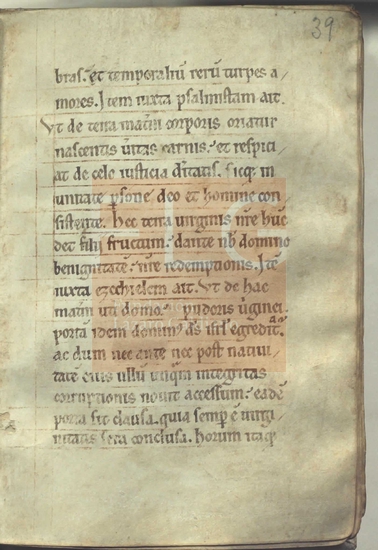 39
bras. et temporaliu reru turpes a/
mores. Item iuxta psalmistam ait.
Vt de terra matris corporis oriatur
nascentis ueritas carnis. et respici/
at de celo iusticia diuitatis. sicq; in
unitate psone deo et homine con/
sistente. Hec terra uirginis nre huc
det filij fructum. dante nb domino
benignitate nre redemptionis. Ite
iuxta ezechielem ait. Vt de hac
matris uti domo. pudoris uginei
porta idem dominus ds isrl egredit.
ac dum nec ante nec post natiui/
tate eius ullu unqm integritas
corruptionis nouit accessum. eade
porta sit clausa. quia semp e uirgi/
nitatis sera conclusa. horum itaq;